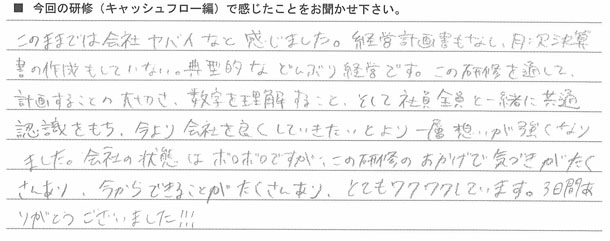 ■ 今回の研修（キャッシュフロー編）で感じたことをお聞かせ下さい。
このままでは会社ヤバイなと感じました。経営計画書もなし、月次決算
書の作成もしていない。典型的などんぶり経営です。この研修を通して、
計画することの大切さ、数字を理解すること、そして社員全員と一緒に共通
認識をもち、今より会社を良くしていきたいとより一層想いが強くなり
ました。会社の状態はボロボロですが、この研修のおかげで気づきがたく
さんあり、今からできることがたくさんあり、とてもワクワクしています。3日間あ
りがとうございました!!!